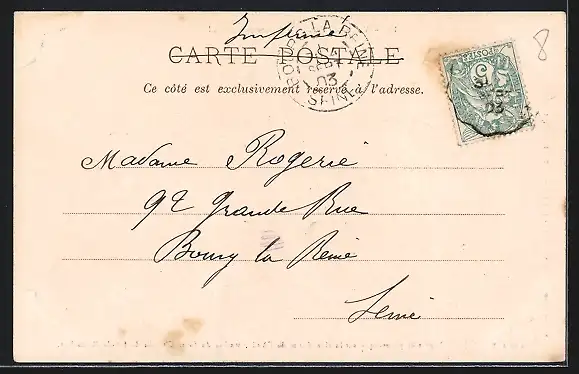 Imprimé
CARTE POSTALE
Ce côté est exclusivement réservé à l'adresse.
BOURG LA REINE
03
SEINE
POSTES
5
03
8
Madame Rogerie
92 Grande Rue
Bourg la Reine
Seine